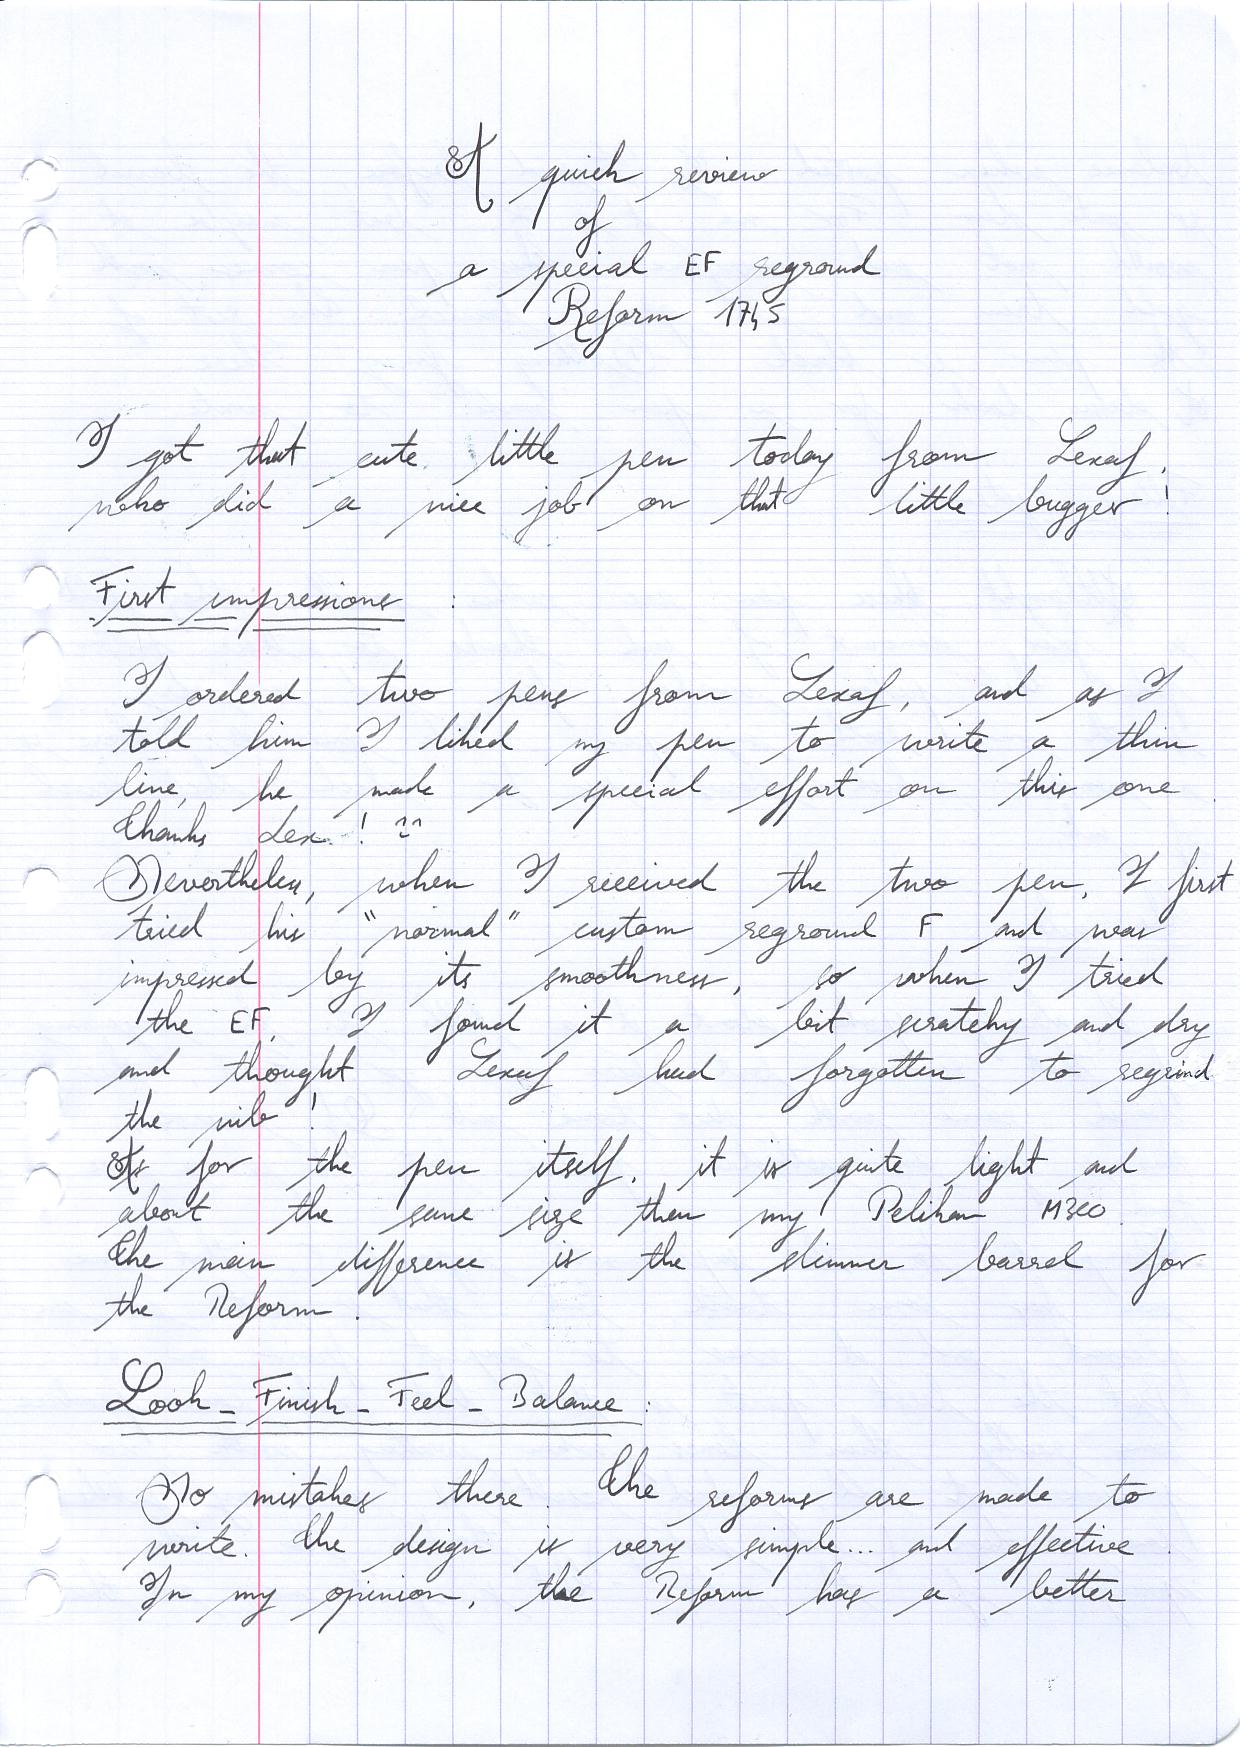 A quick review
of
a special EF reground
Reform 1745
I got that cute little pen today from Lexaf,
who did a nice job on that little bugger !
First impressions :
I ordered two pens from Lexaf, and as I
told him I liked my pen to write a thin
line, he made a special effort on this one.
Thanks Lex. ! ^^
Nevertheless, when I received the two pen, I first
tried his "normal" custom reground F and was
impressed by its smoothness, so when I tried
the EF, I found it a bit scratchy and dry
and thought Lexaf had forgotten to regrind
the nib !
As for the pen itself, it is quite light and
about the same size then my Pelikan M300.
The main difference is the slimmer barrel for
the Reform.
Look - Finish - Feel - Balance :
No mistakes there. The reforms are made to
write. The design is very simple... and effective.
In my opinion, the Reform has a better